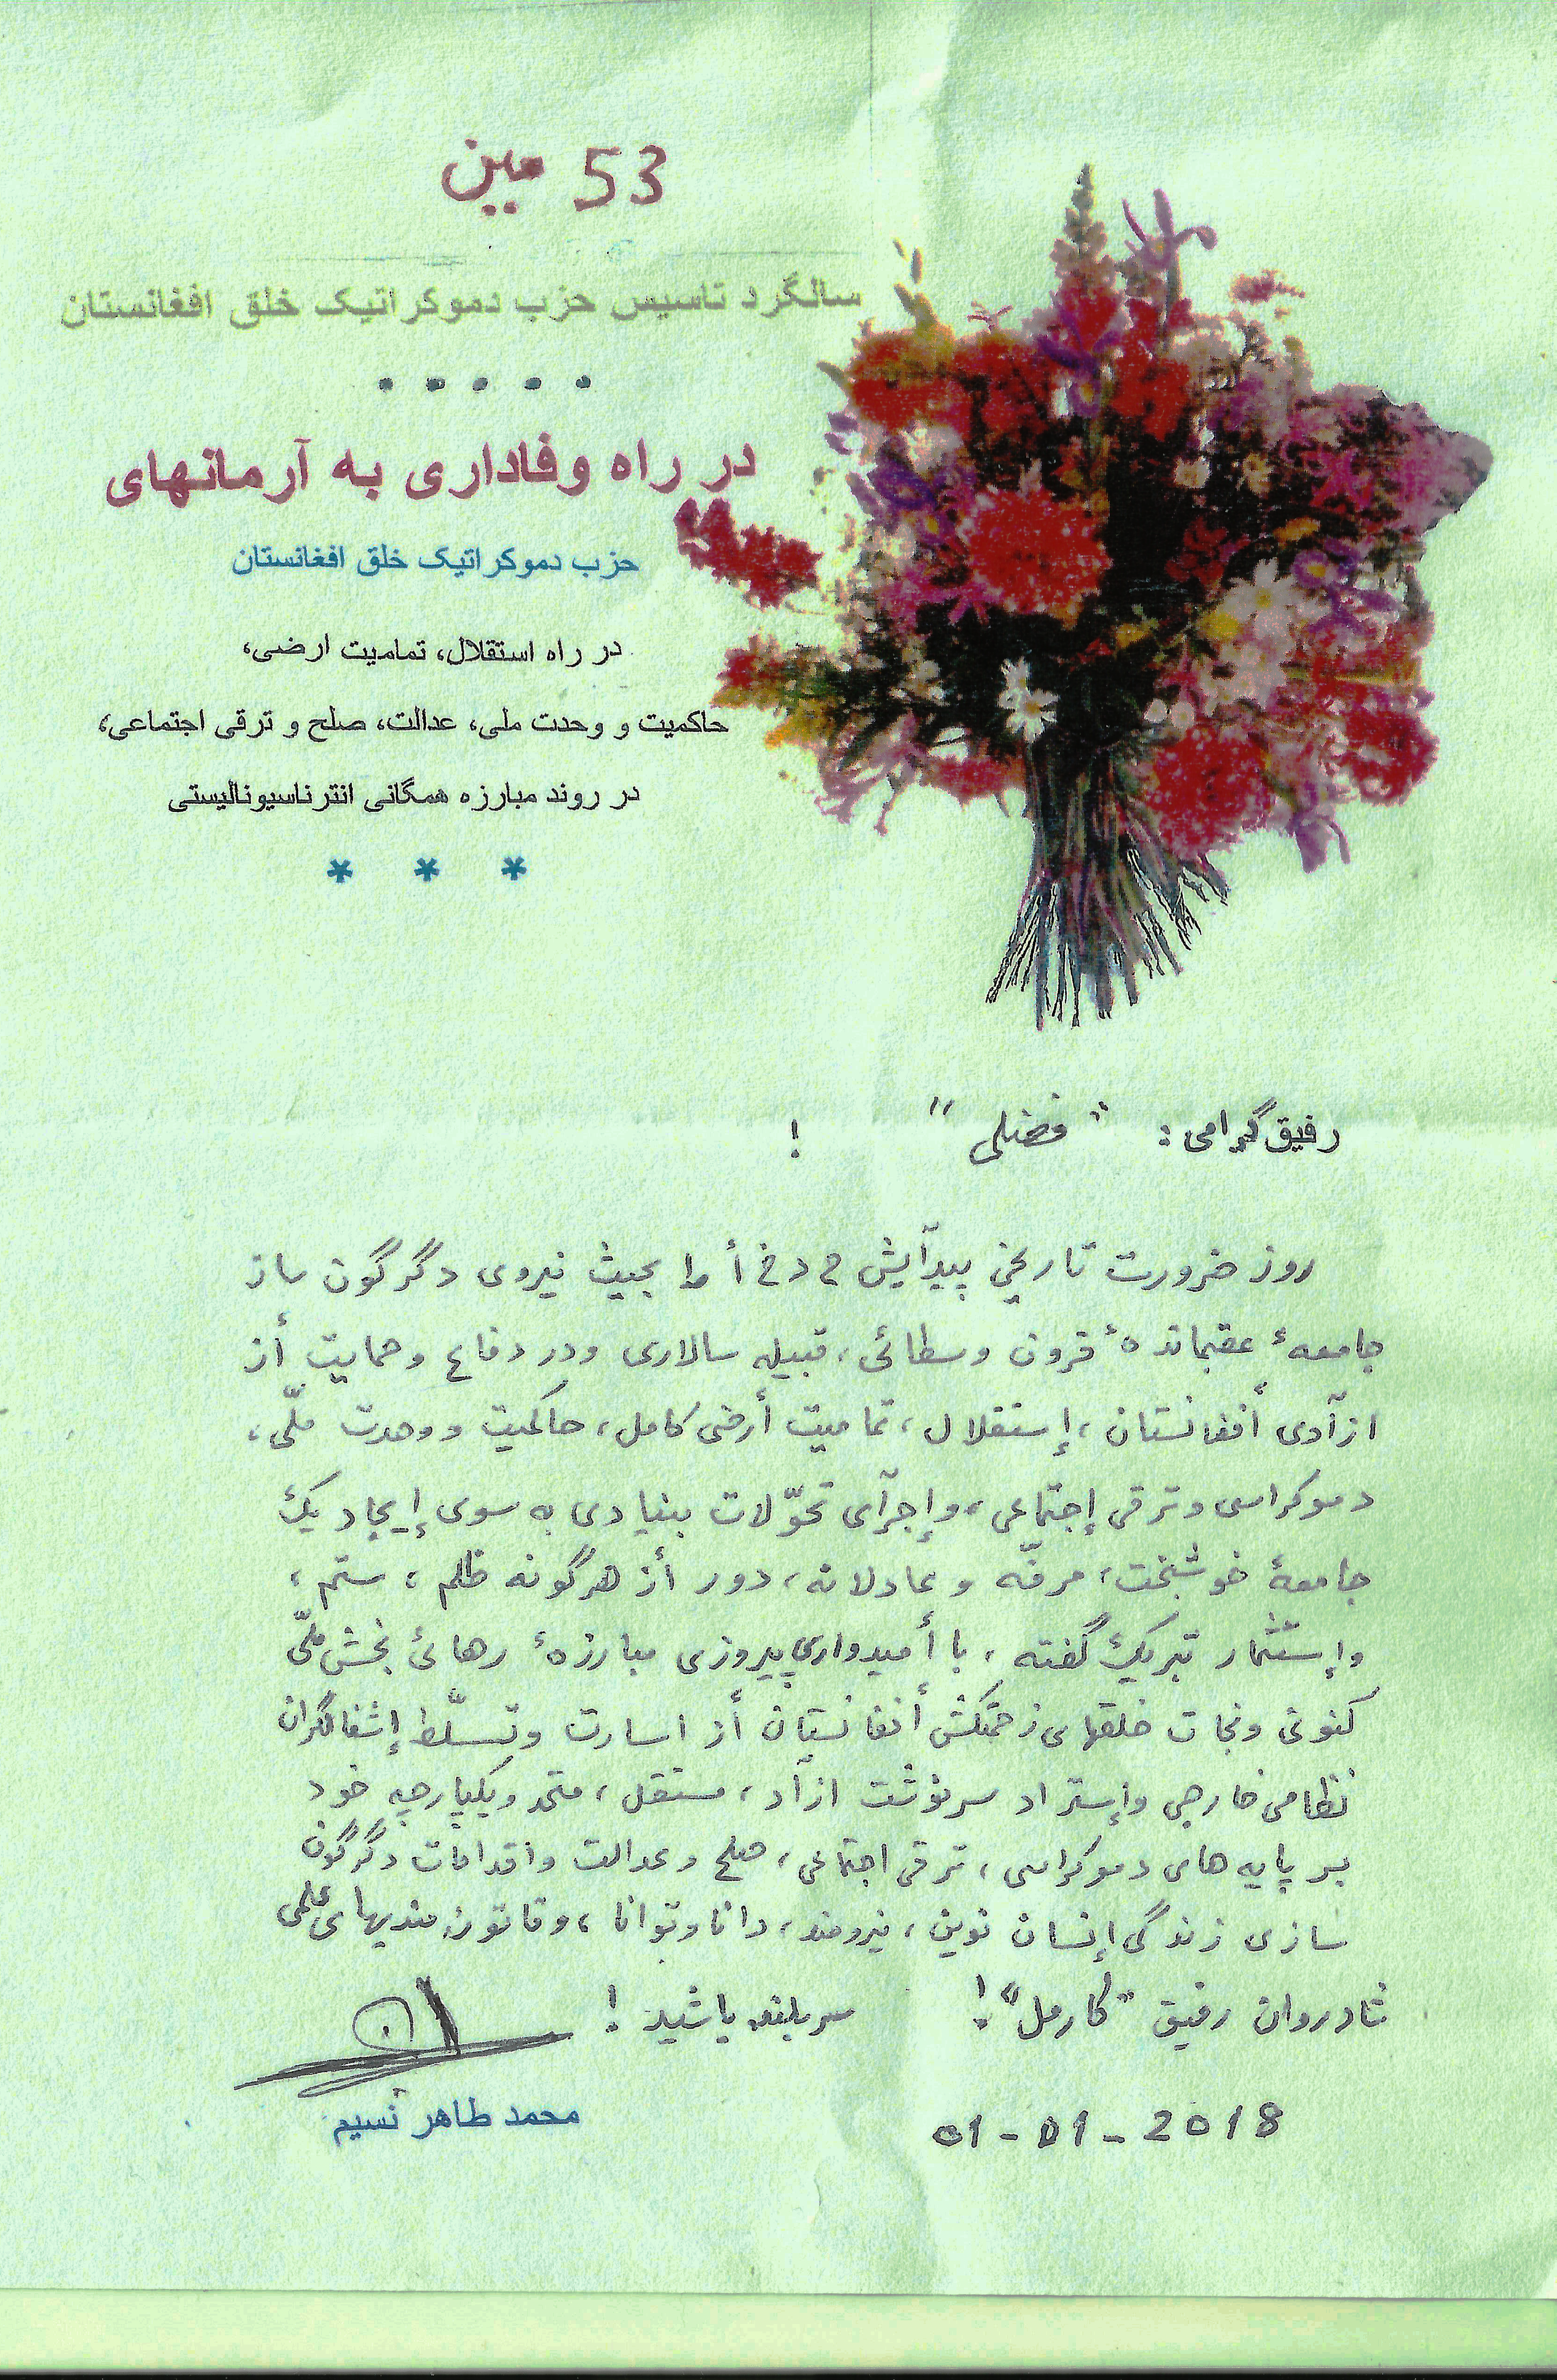 53 مین
سالگرد تاسیس حزب دموکراتیک خلق افغانستان
• • • • •
در راه وفاداری به آرمانهای
حزب دموکراتیک خلق افغانستان
در راه استقلال، تمامیت ارضی،
حاکمیت و وحدت ملی، عدالت، صلح و ترقی اجتماعی،
در روند مبارزه همگانی انترناسیونالیستی
* * *
رفیق گرامی: "فضلی" !
روز ضرورت تاریخی پیدآیش ح د خ أ را بحیث نیروی دگرگون ساز
جامعهٔ عقبماندهٔ قرون وسطائی، قبیله سالاری ودر دفاع وحمایت أز
ازآدی أفغانستان، إستقلال، تمامیت أرضی کامل، حاکمیت ووحدت ملّی،
دموکراسی وترقی إجتماعی، وإجرآی تحوّلات بنیادی به سوی إیجاد یک
جامعهٔ خوشبخت، مرفّه وعادلانه، دور أز هرگونه ظلم، ستم،
وإستثمار تبریک گفته، با أمیدواری پیروزی مبارزهٔ رهائی بخش ملّی
کنونی ونجات خلقهای زحمتکش أفغانستان أز اسارت وتسلّط إشغالگران
نظامی خارجی وإسترداد سرنوشت ازآد، مستقل، متحد ویکپارچه خود
بر پایه های دموکراسی، ترقی اجتماعی، صلح وعدالت واقدامات دگرگون
سازی زندگی إنسان نوین، نیرومند، دانا وتوانا، وقانون مندیهای علمی
شادروان رفیق "کارمل"! سربلند باشید!
محمد طاهر نسیم
01-01-2018